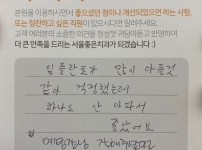 본원을 이용하시면서 좋으셨던 점이나 개선되었으면 하는 사항,
또는 칭찬하고 싶은 직원이 있으시다면 알려주세요.
고객 여러분의 소중한 의견을 정성껏 귀담아듣고 반영하여
더 큰 만족을 드리는 서울좋은치과가 되겠습니다:)
임플란트가 많이 아플것
같아 걱정했는데
하나도 안 아파서
좋았어요